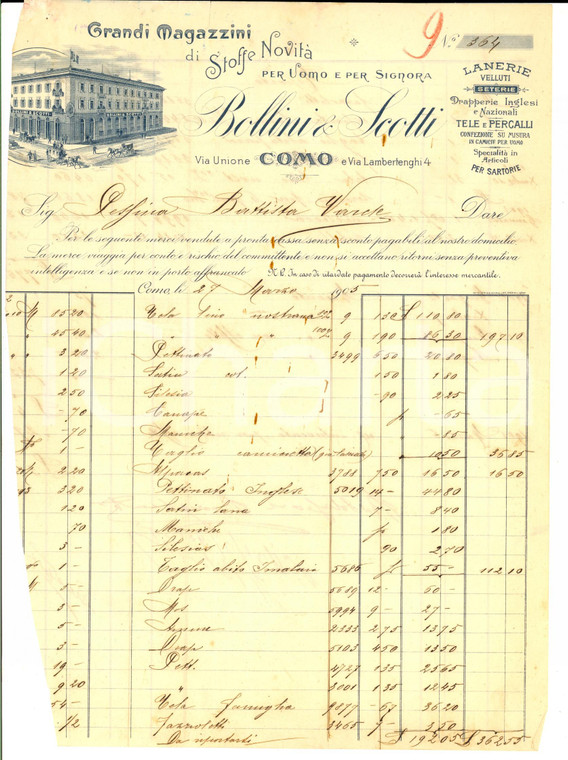 Grandi Magazzini
di Stoffe Novità
PER UOMO E PER SIGNORA
Bollini & Scotti
Via Unione COMO e Via Lambertenghi 4
9
No 364
LANERIE
VELLUTI
SETERIE
Drapperie Inglesi
e Nazionali
TELE e PERCALLI
CONFEZIONE SU MISURA
DI CAMICIE PER UOMO
Specialità in
Articoli
PER SARTORIE
Sig. Pessina Battista Dare
Per le seguenti merci vendute a pronta cassa senza sconto pagabili al nostro domicilio
La merce viaggia per conto e rischio del committente e non si accettano ritorni senza preventiva
intelligenza e se non in porto affrancato. N.B. In caso di ritardato pagamento decorrerà l'interesse mercantile.
Como, li 27 Marzo 1905
M 85 20 Tela lino nostrana 9 130 £ 110 80
" 45 40 " " 9 190 86 30 197 10
" 3 20 Pettinato 3499 6 50 20 80
1 20 Satin col. 1 50 1 80
2 50 Silesia - 90 2 25
- 70 Canape - 65
70 Maniche - 85
1 - Taglio camicetta 10 50 36 85
2 20 Alpacas 3738 7 50 16 50 16 50
3 20 Pettinato Inglese 5019 14 - 44 80
1 20 Satin lana 7 - 8 40
70 Maniche 1 80
3 - Silesias 90 2 70
1 - Taglio abito 5685 55 - 112 10
5 - Drap 12 - 60 -
3 - Mos 5994 9 - 27 -
5 - 2333 2 75 13 75
3 - Drap 5103 4 50 13 50
19 - Pett. 4727 1 35 25 65
9 20 " 3001 1 35 12 45
54 - Tela famiglia 9877 - 67 36 20
1/2 Fazzoletti 3465 7 - 3 50
Da riportarsi £ 192 05 £ 362 55